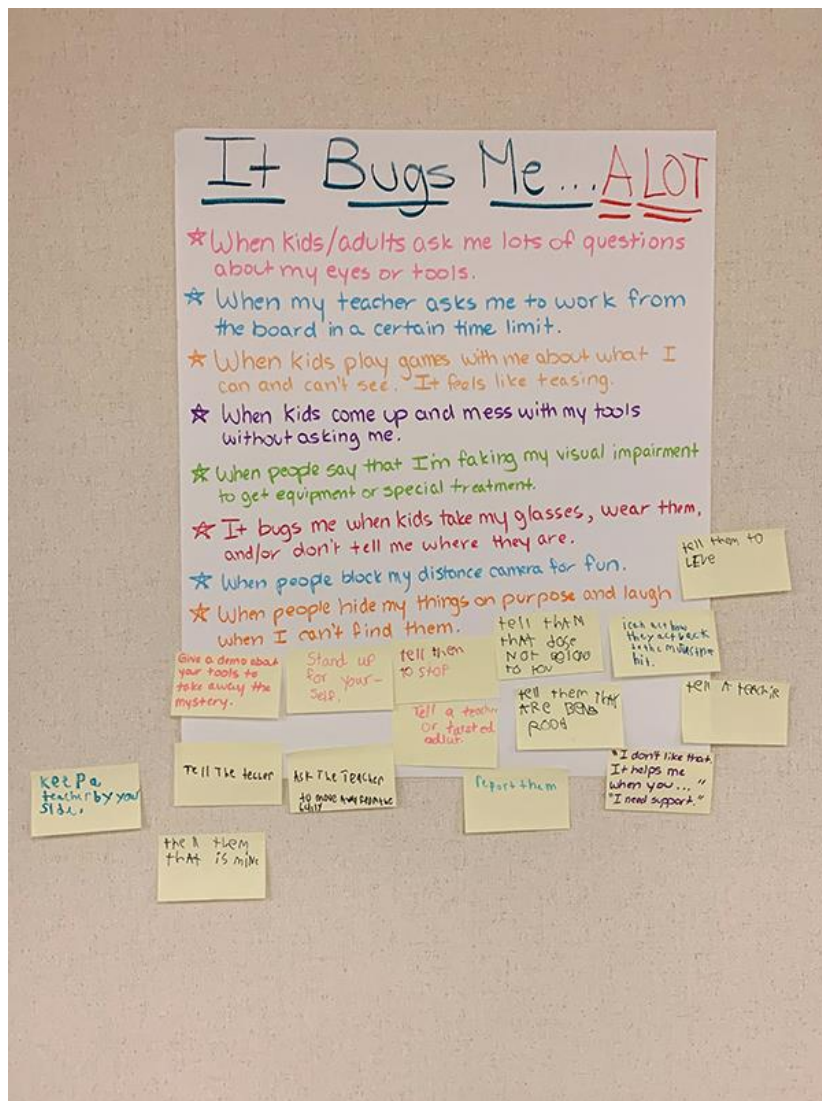 It Bugs Me... A LOT
☆ When kids/adults ask me lots of questions
about my eyes or tools.
☆ When my teacher asks me to work from
the board in a certain time limit.
☆ When kids play games with me about what I
can and can't see. It feels like teasing.
☆ When kids come up and mess with my tools
without asking me.
☆ When people say that I'm faking my visual impairment
to get equipment or special treatment.
☆ It bugs me when kids take my glasses, wear them,
and/or don't tell me where they are.
☆ When people block my distance camera for fun.
☆ When people hide my things on purpose and laugh
when I can't find them.
tell them to
LEVE
Give a demo about
your tools to
take away the
mystery.
Stand up
for your-
self.
tell them
to STOP
tell thAM
thAT dose
NOT
to you
they act back
Tell a teacher
or trusted
adult.
tell them
ARE
tell A
Tell The
Ask The Teacher
to move
report them
"I don't like that.
It helps me
when you..."
"I need support."
keep a
teacher by you
Side.
them
thAT is miNe